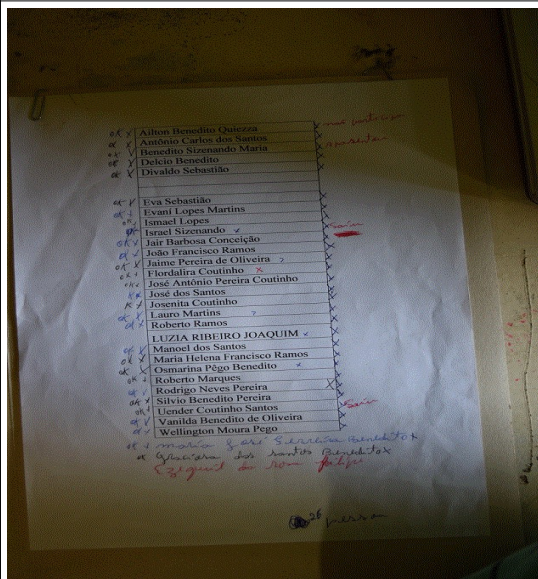 ok X Ailton Benedito Quiezza X não
ok X Antônio Carlos dos Santos X aposentou
ok X Benedito Sizenando Maria X
ok X Delcio Benedito X
ok X Divaldo Sebastião X
ok X Eva Sebastião X
ok Evani Lopes Martins X
ok Ismael Lopes X
ok Israel Sizenando X saiu
ok X Jair Barbosa Conceição X
ok João Francisco Ramos X
ok X Jaime Pereira de Oliveira ? X
ok Flordalira Coutinho X X
ok José Antônio Pereira Coutinho X
ok José dos Santos X
ok Josenita Coutinho X
ok X Lauro Martins ? X
ok X Roberto Ramos X
LUZIA RIBEIRO JOAQUIM X
ok X Manoel dos Santos X
ok X Maria Helena Francisco Ramos X
ok X Osmarina Pêgo Benedito X
ok Roberto Marques X
ok Rodrigo Neves Pereira X X
ok X Silvio Benedito Pereira X saiu
ok Uender Coutinho Santos X
ok X Vanilda Benedito de Oliveira X
ok Wellington Moura Pego X
ok maria José Benedito X
ok dos santos Benedito X
Ezequiel da rosa felipe
26 pessoa